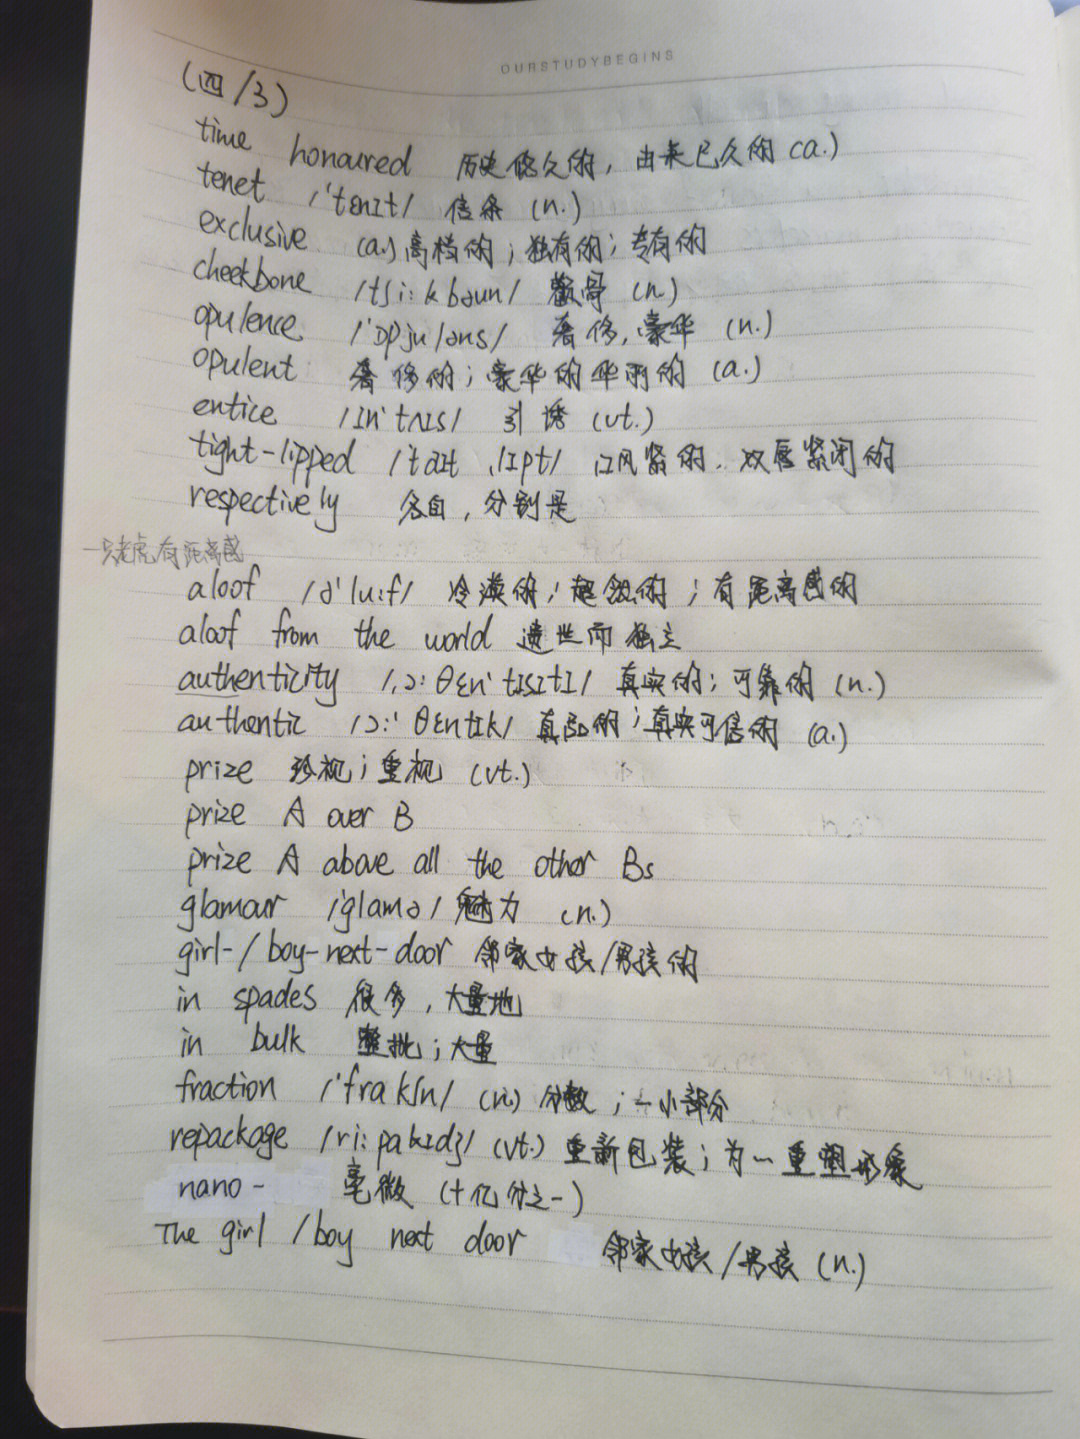 OURSTUDYBEGINS
(四/3)
time honoured 历史悠久的, 由来已久的 (a.)
tenet /'tɛnɪt/ 信条 (n.)
exclusive (a.) 高档的; 独有的; 专有的
cheekbone /tʃi:kbəun/ 颧骨 (n.)
opulence /'ɒpjuləns/ 奢侈, 豪华 (n.)
opulent 奢侈的; 豪华的 华丽的 (a.)
entice /ɪn'tʌɪs/ 引诱 (vt.)
tight-lipped /taɪt ,lɪpt/ 口风紧的. 双唇紧闭的
respectively 各自, 分别是
一只老虎有距离感
aloof /ə'lu:f/ 冷漠的; 超然的; 有距离感的
aloof from the world 遗世而独立
authenticity /,ɔ:θɛn'tɪsɪtɪ/ 真实的; 可靠的 (n.)
authentic /ɔ:'θɛntɪk/ 真正的; 真实可信的 (a.)
prize 珍视; 重视 (vt.)
prize A over B
prize A above all the other Bs
glamour /'glamə/ 魅力 (n.)
girl-/boy-next-door 邻家女孩/男孩的
in spades 很多, 大量地
in bulk 整批; 大量
fraction /'frakʃn/ (n.) 分数; 一小部分
repackage /ri:pakɪdʒ/ (vt.) 重新包装; 为…重塑形象
nano- 毫微 (十亿分之一)
The girl /boy next door 邻家女孩/男孩 (n.)